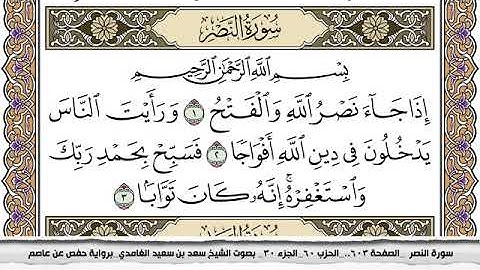 سُورَةُ النَّصْرِ
بِسْمِ اللَّهِ الرَّحْمَٰنِ الرَّحِيمِ
إِذَا جَآءَ نَصْرُ اللَّهِ وَالْفَتْحُ ١ وَرَأَيْتَ النَّاسَ
يَدْخُلُونَ فِي دِينِ اللَّهِ أَفْوَاجًا ٢ فَسَبِّحْ بِحَمْدِ رَبِّكَ
وَاسْتَغْفِرْهُ ۚ إِنَّهُ كَانَ تَوَّابًا ٣
سورة النصر _الصفحة ٦٠٣_.._الحزب ٦٠_الجزء ٣٠_ بصوت الشيخ سعد بن سعيد الغامدي_برواية حفص عن عاصم